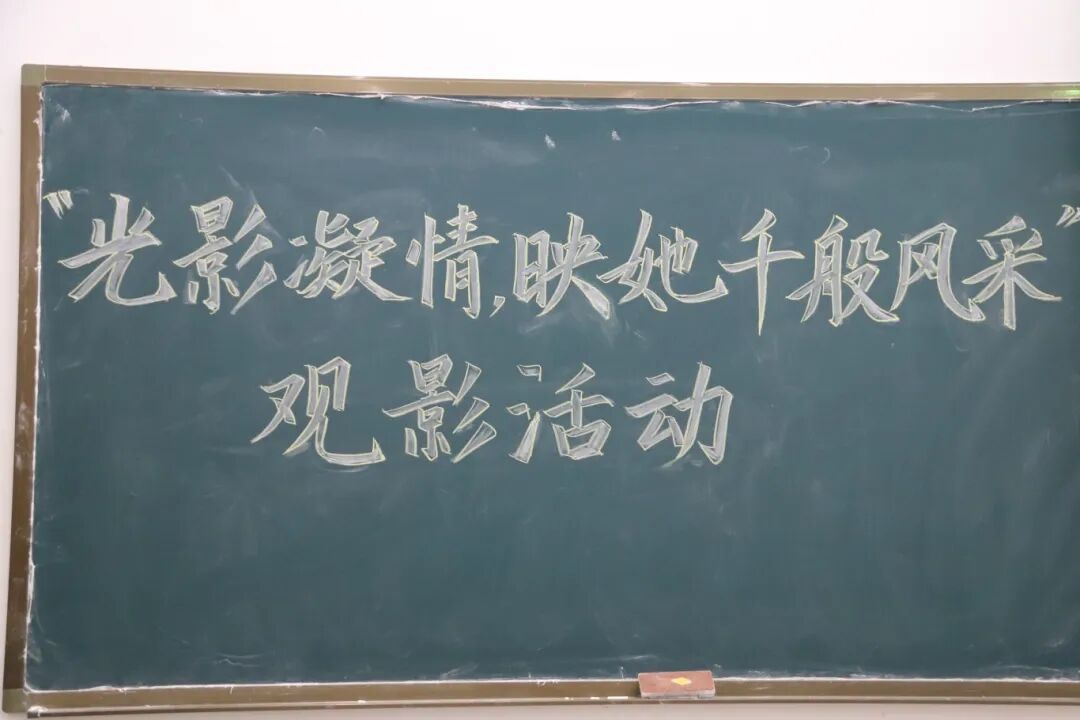 "光影凝情,映她千般风采"
观影活动